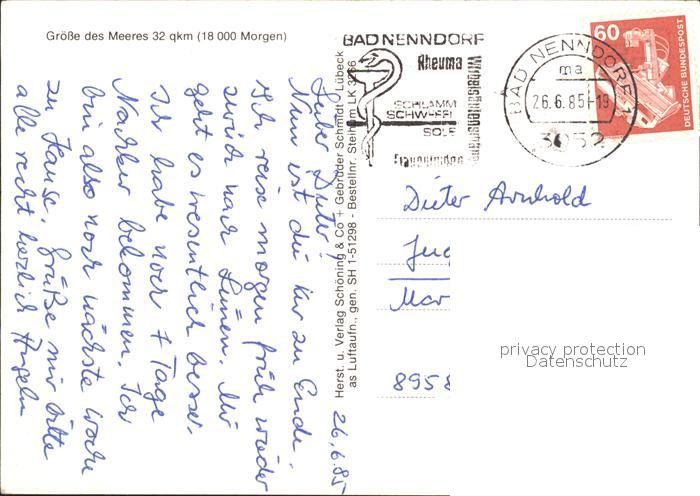 Größe des Meeres 32 qkm (18 000 Morgen)
26.6.85
Lieber Dieter!
Nun ist die Kur zu Ende.
Ich reise morgen früh wieder
zurück nach Lünen. Mir
geht es wesentlich besser.
Ich habe noch 7 Tage
Nachkur bekommen. Ich
bin also noch nächste Woche
zu Hause. Grüße mir bitte
alle recht herzlich Angeln
Herst. u. Verlag Schöning & Co + Gebrüder Schmidt - Lübeck
as Luftaufn., gen. SH 1-51298 - Bestellnr. Steinhm LK
BAD NENNDORF
Rheuma
Wirbelsäulenschäden
SCHLAMM
SCHWEFEL
SOLE
Frauenleiden
BAD NENNDORF 1
ma
26.6.85-19
3052
60
DEUTSCHE BUNDESPOST
Dieter Arnhold
8958
privacy protection
Datenschutz